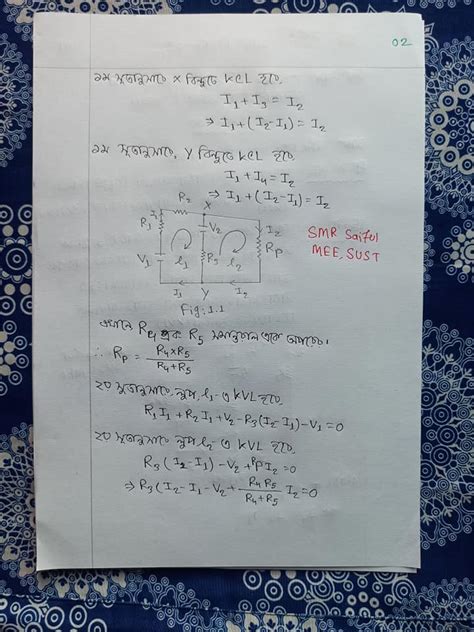 02
১ম সূত্রানুসারে X বিন্দুতে KCL হতে,
I₁ + I₃ = I₂
⇒ I₁ + (I₂-I₁) = I₂
১ম সূত্রানুসারে, Y বিন্দুতে KCL হতে
I₁ + I₄ = I₂
⇒ I₁ + (I₂-I₁) = I₂
R₂ X
I₁ V₂ I₂
R₁ Rₚ
V₁ l₁ R₃ l₂
I₁ Y I₂
Fig: 1.1
SMR Saiful
MEE, SUST
এখানে R₄ এবং R₅ সমান্তরাল
∴ Rₚ = R₄×R₅ / R₄+R₅
২য় সূত্রানুসারে, লুপ l₁-এ KVL হতে,
R₁I₁ + R₂I₁ + V₂ - R₃(I₂-I₁) - V₁ = 0
২য় সূত্রানুসারে লুপ l₂-এ KVL হতে,
R₃(I₂-I₁) - V₂ + RₚI₂ = 0
⇒ R₃(I₂-I₁ - V₂ + R₄R₅ / R₄+R₅ I₂ = 0